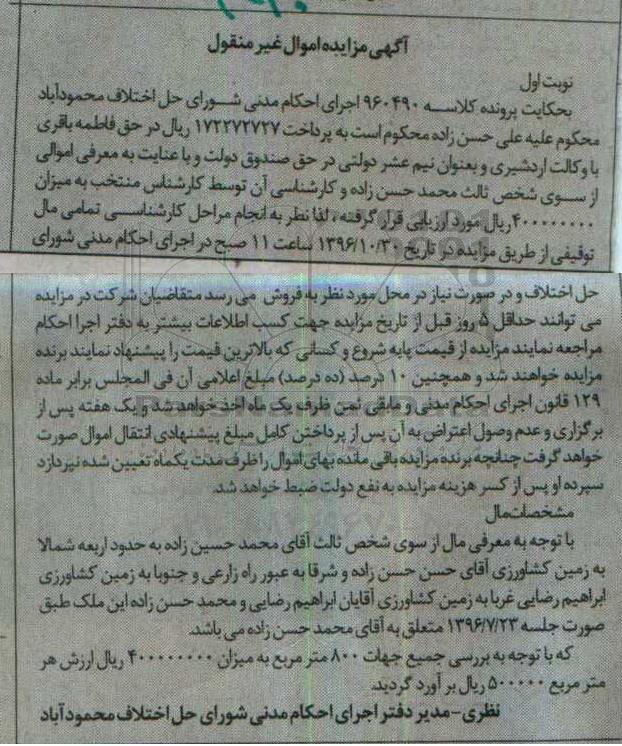 آگهی مزایده اموال غیر منقول
نوبت اول
بحکایت پرونده کلاسه ۹۶۰۴۹۰ اجرای احکام مدنی شورای حل اختلاف محمودآباد
محکوم علیه علی حسن زاده محکوم است به پرداخت ۱۷۲۲۷۲۷۲۷ ریال در حق فاطمه باقری
با وکالت اردشیری و بعنوان نیم عشر دولتی در حق صندوق دولت و با عنایت به معرفی اموالی
از سوی شخص ثالث محمد حسن زاده و کارشناسی آن توسط کارشناس منتخب به میزان
۴۰۰۰۰۰۰۰۰ ریال مورد ارزیابی قرار گرفته ، لذا نظر به انجام مراحل کارشناسی تمامی مال
توقیفی از طریق مزایده در تاریخ ۱۳۹۶/۱۰/۳۰ ساعت ۱۱ صبح در اجرای احکام مدنی شورای
حل اختلاف و در صورت نیاز در محل مورد نظر به فروش می رسد متقاضیان شرکت در مزایده
می توانند حداقل ۵ روز قبل از تاریخ مزایده جهت کسب اطلاعات بیشتر به دفتر اجرا احکام
مراجعه نمایند مزایده از قیمت پایه شروع و کسانی که بالاترین قیمت را پیشنهاد نمایند برنده
مزایده خواهند شد و همچنین ۱۰ درصد (ده درصد) مبلغ اعلامی آن فی المجلس برابر ماده
۱۲۹ قانون اجرای احکام مدنی و مابقی ثمن ظرف یک ماه اخذ خواهد شد و یک هفته پس از
برگزاری و عدم وصول اعتراض به آن پس از پرداختن کامل مبلغ پیشنهادی انتقال اموال صورت
خواهد گرفت چنانچه برنده مزایده باقی مانده بهای اموال را ظرف مدت یکماه تعیین شده نپردازد
سپرده او پس از کسر هزینه مزایده به نفع دولت ضبط خواهد شد.
مشخصات مال
با توجه به معرفی مال از سوی شخص ثالث آقای محمد حسین زاده به حدود اربعه شمالا
به زمین کشاورزی آقای حسن حسن زاده و شرقا به عبور راه زارعی و جنوبا به زمین کشاورزی
ابراهیم رضایی غربا به زمین کشاورزی آقایان ابراهیم رضایی و محمد حسن زاده این ملک طبق
صورت جلسه ۱۳۹۶/۷/۲۳ متعلق به آقای محمد حسن زاده می باشد.
که با توجه به بررسی جمیع جهات ۸۰۰ متر مربع به میزان ۴۰۰۰۰۰۰۰۰ ریال ارزش هر
متر مربع ۵۰۰۰۰۰ ریال بر آورد گردید.
نظری-مدیر دفتر اجرای احکام مدنی شورای حل اختلاف محمودآباد